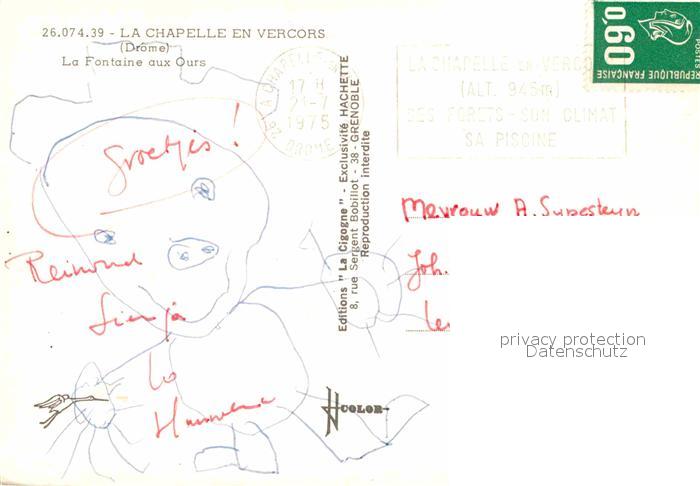 26.074.39 - LA CHAPELLE EN VERCORS
(Drôme)
La Fontaine aux Ours
LA CHAPELLE EN
17 H
21-7
1975
26 DROME
LA CHAPELLE EN VERCO
(ALT. 945m)
SES FORETS - SON CLIMAT
SA PISCINE
0,60
REPUBLIQUE FRANÇAISE
POSTES
Editions "La Cigogne" - Exclusivité HACHETTE
8, rue Sergent Bobillot - 38 - GRENOBLE
Reproduction interdite
Groetjes!
Reinoud
Mevrouw A. Supesteyn
Joh.
privacy protection
Datenschutz
COLOR